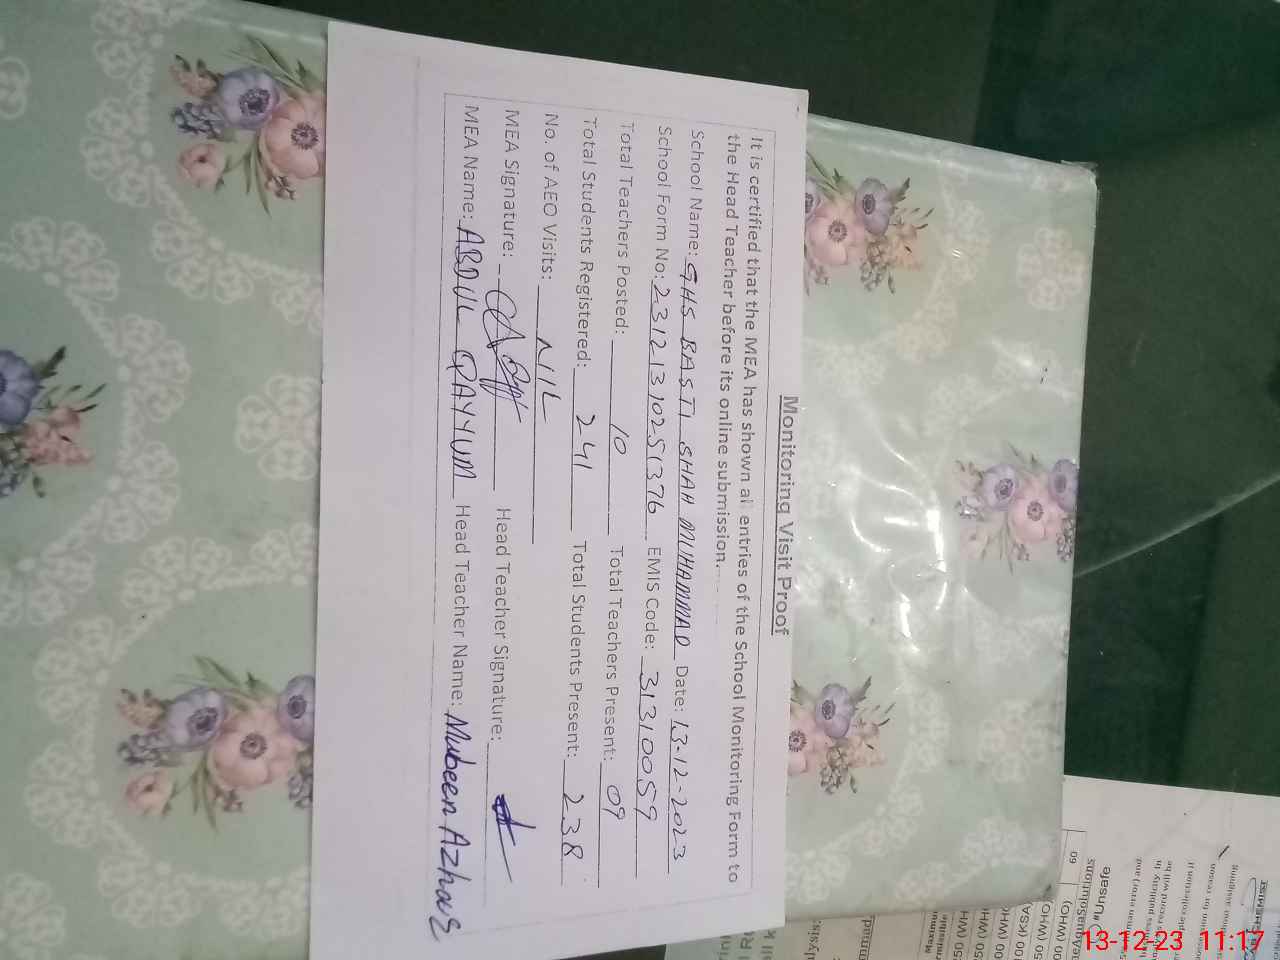 Monitoring Visit Proof
It is certified that the MEA has shown all entries of the School Monitoring Form to
the Head Teacher before its online submission.
School Name: GHS BASTI SHAH MUHAMMAD Date: 13-12-2023
School Form No: 23121310251376 EMIS Code: 31310059
Total Teachers Posted: 10 Total Teachers Present: 09
Total Students Registered: 241 Total Students Present: 238
No. of AEO Visits: NIL
MEA Signature: Head Teacher Signature:
MEA Name: ABDUL QAYYUM Head Teacher Name: Mubeen Azhar
60
#Unsafe
eAquaSolutions
(WHO)
13-12-23 11:17